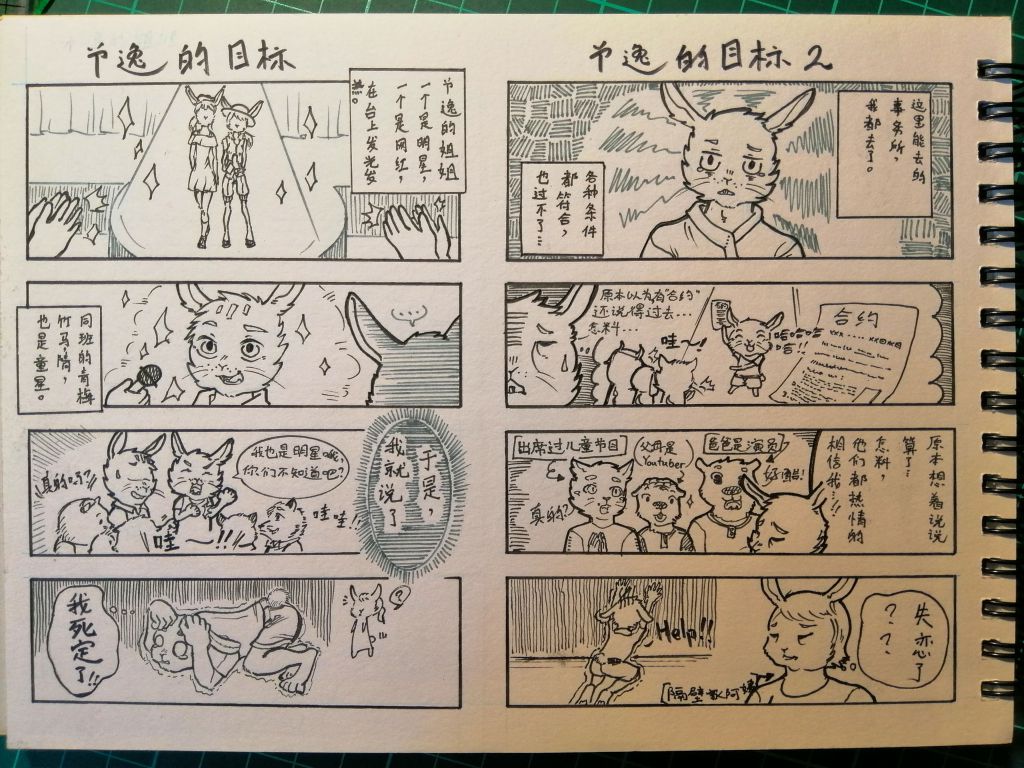 逸的目标
逸的姐姐
一个是明星,
一个是网红,
在台上发光发
热。
同班的青梅
竹马隋,
也是童星。
真的吗??
我也是明星哦,
你们不知道吧?
哇
!!
哇哇!!
于是,
我就说了
我死定
了!!
?
逸的目标2
这里能去的
事务所,
我都去了。
各种条件
都符合,
也过不了…
原本以为有"合约"
还说得过去…
怎料…
哇~!
哈哈哈
哈!!
合约
原本想着说说
算了…
怎料,
他们都热情的
相信我…!!
[出席过儿童节目]
父母是
Youtuber
爸爸是演员]
真的?
Help!!
[隔壁
失恋了
???